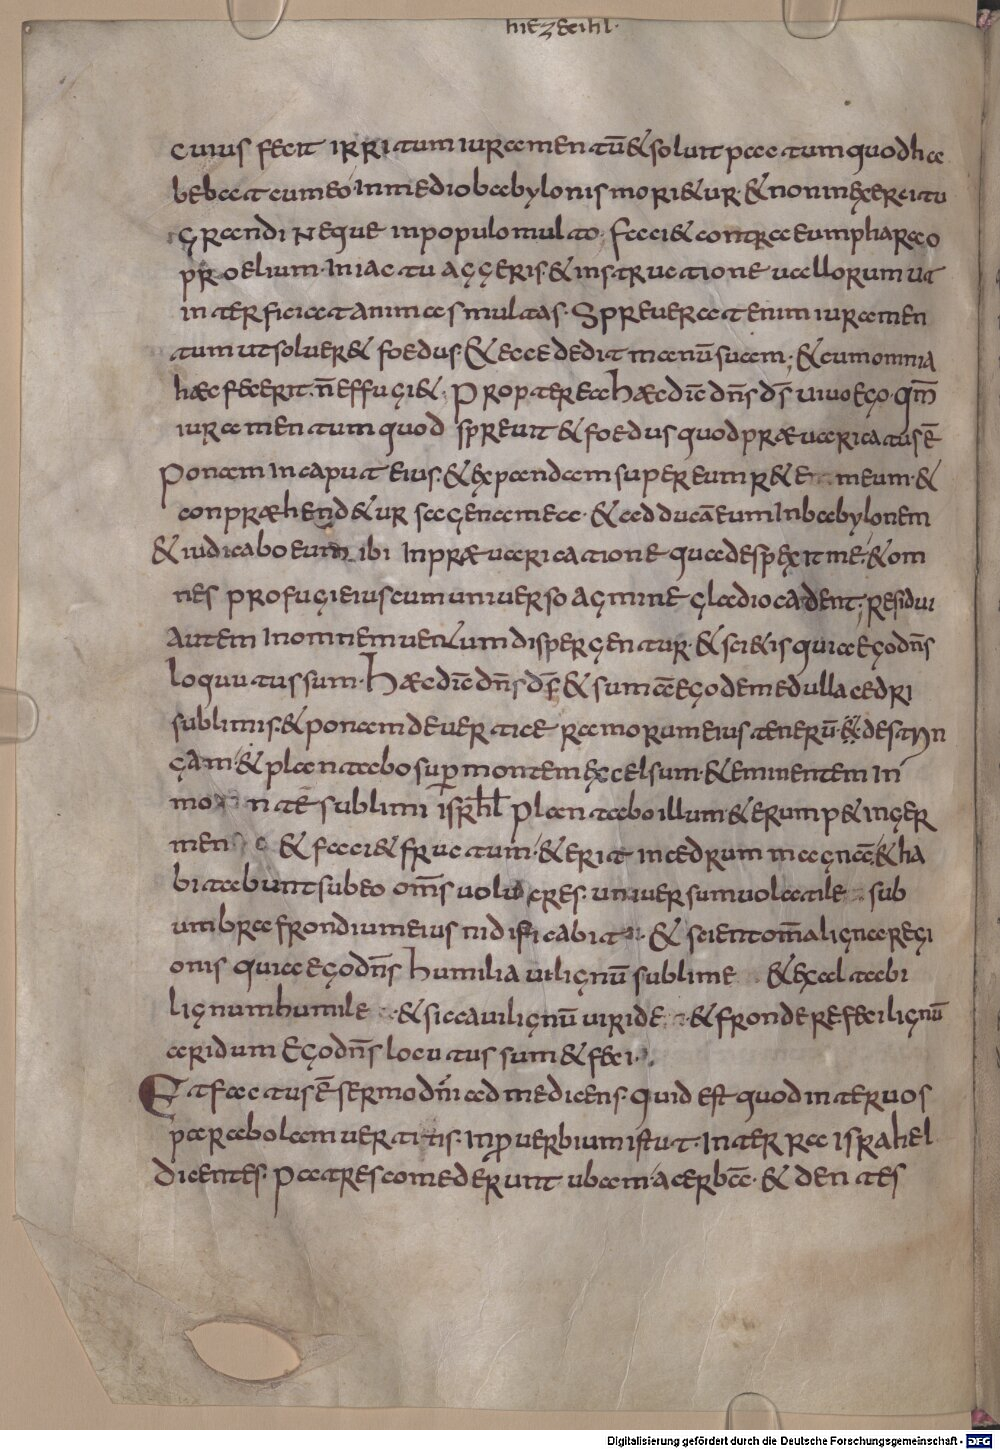 hiezecihl·
cuius fecit irritum iuramentū & soluit pactum quod ha
bebat cum eo · in medio babylonis mori&ur · & non in exercitu
grandi neque in populo multo · faci& contra eum pharao
proelium · in iactu aggeris · & instructione uallorum ut
interficiat animas multas · Spreuerat enim iuramen
tum ut soluer& foedus · & ecce dedit manū suam · & cum omnia
haec fecerit · ñ effugi& · Propterea haec dicē dn̄s ds̄ uiuo ego · qm̄
iuramentum quod spreuit & foedus quod praeuaricatus ē
Ponam in caput eius · & expandam super eum r&e meum · &
conpraehend&ur sagena mea · & adducā eum in babylonem
& iudicabo eum ibi in praeuaricatione qua despexit me · & om
nes profugi eius cum uniuerso agmine gladio cadent · residui
autem in omnem uentum dispergentur · & sci&is quia ego dn̄s
loquutus sum · Haec dicē dn̄s ds̄ & sumā ego de medulla cedri
sublimis · & ponam de uertice ramorum eius tenerū & destrin
gam · & plantabo super montem excelsum · & eminentem in
monte sublimi isrhl̄ plantabo illum · & erump& in ger
men & faci& fructum · & erit in cedrum magnā & ha
bitabunt sub eo om̄s uolucres · uniuersum uolatile sub
umbra frondium eius nidificabit · & scient om̄a ligna regi
onis quia ego dn̄s humiliaui lignū sublime & exaltabi
lignum humile · & siccaui lignū uiride · & frondere feci lignū
aridum Ego dn̄s locutus sum & feci ·
Et factus ē sermo dn̄i ad me dicens · quid est quod inter uos
parabolam uertitis · in prouerbium istut · in terra israhel
dicentes · Patres comederunt ubam acerbā · & dentes
Digitalisierung gefördert durch die Deutsche Forschungsgemeinschaft - DFG